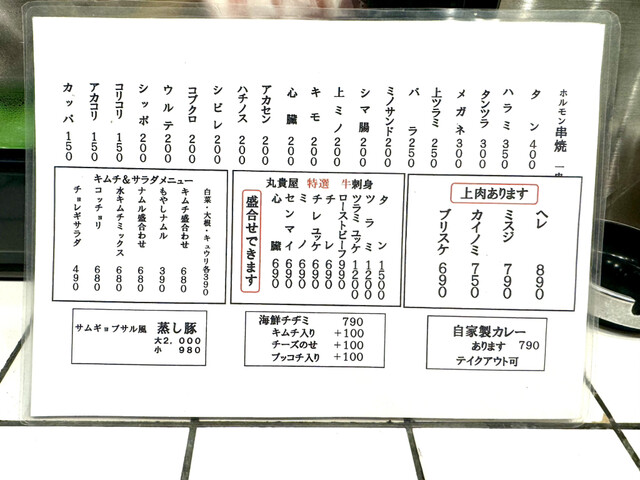 ホルモン串焼
タン 400
ハラミ 350
タンツラ 300
メガネ 300
上ツラミ 250
バラ 250
ミノサンド 200
シマ腸 200
上ミノ 200
キモ 200
心臓 200
アカセン 200
ハチノス 200
シビレ 200
コブクロ 200
ウルテ 200
シッポ 200
コリコリ 150
アカコリ 150
カッパ 150
キムチ&サラダメニュー
白菜・大根・キュウリ各390
キムチ盛合わせ 680
もやしナムル 390
ナムル盛合わせ 680
水キムチミックス 680
コッチョリ 680
チョレギサラダ 490
丸貴屋 特選 牛刺身
タン 1500
ツラミ 1200
ツラミユッケ 1200
ローストビーフ 990
チレ 690
チレユッケ 690
ミノ 690
センマイ 690
心臓 690
盛合せできます
上肉あります
ヘレ 890
ミスジ 790
カイノミ 750
ブリスケ 690
サムギョプサル風 蒸し豚
大2,000
小 980
海鮮チヂミ 790
キムチ入り +100
チーズのせ +100
プッコチ入り +100
自家製カレー
あります 790
テイクアウト可